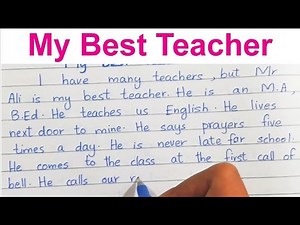 My Best Teacher
I have many teachers, but Mr
Ali is my best teacher. He is an M.A,
B.Ed. He teaches us English. He lives
next door to mine. He says prayers five
times a day. He is never late for school.
He comes to the class at the first call of
bell. He calls our